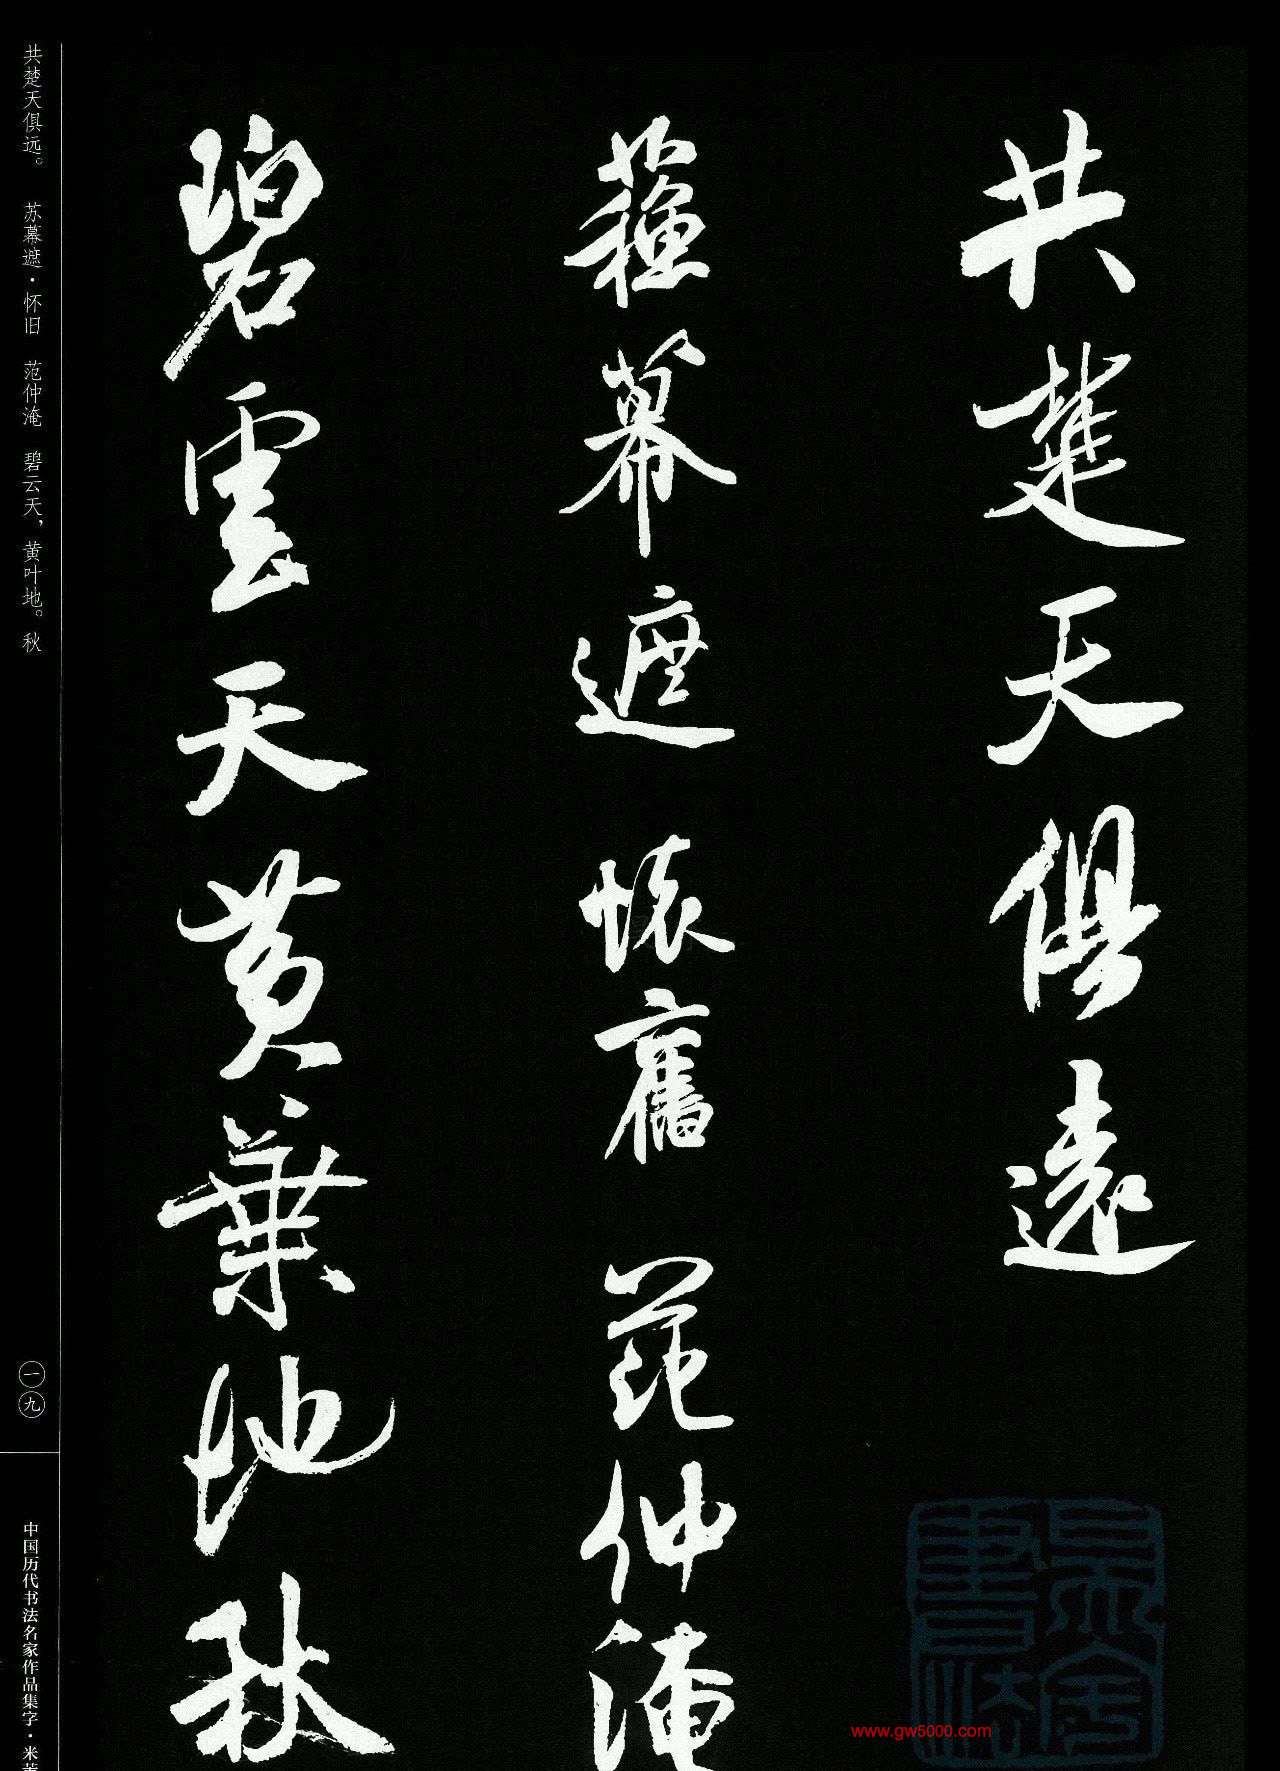 共楚天俱遠
蘓幕遮 懷舊 范仲淹
碧雲天黄葉地秋
共楚天俱远。 苏幕遮·怀旧 范仲淹 碧云天，黄叶地。秋
一九
中国历代书法名家作品集字·米芾
www.gw5000.com